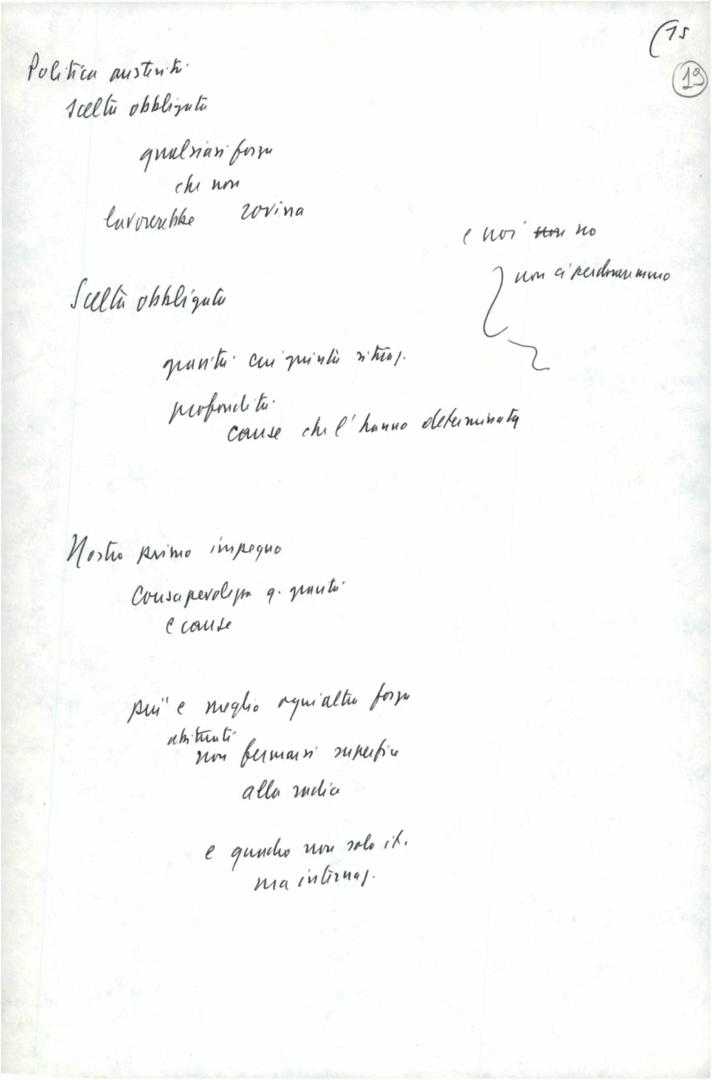 (15
19
Politica austerità
scelta obbligata
qualsiasi forza
che non
lavorerebbe rovina
e noi non no
non ci perdoneremmo
Scelta obbligata
gravità cui giunta situaz.
profondità
cause che l'hanno determinata
Nostro primo impegno
Consapevolezza q. gravità
e cause
più e meglio ogni altra forza
abituati
non fermarsi superficie
alla radice
e quadro non solo it.
ma internaz.